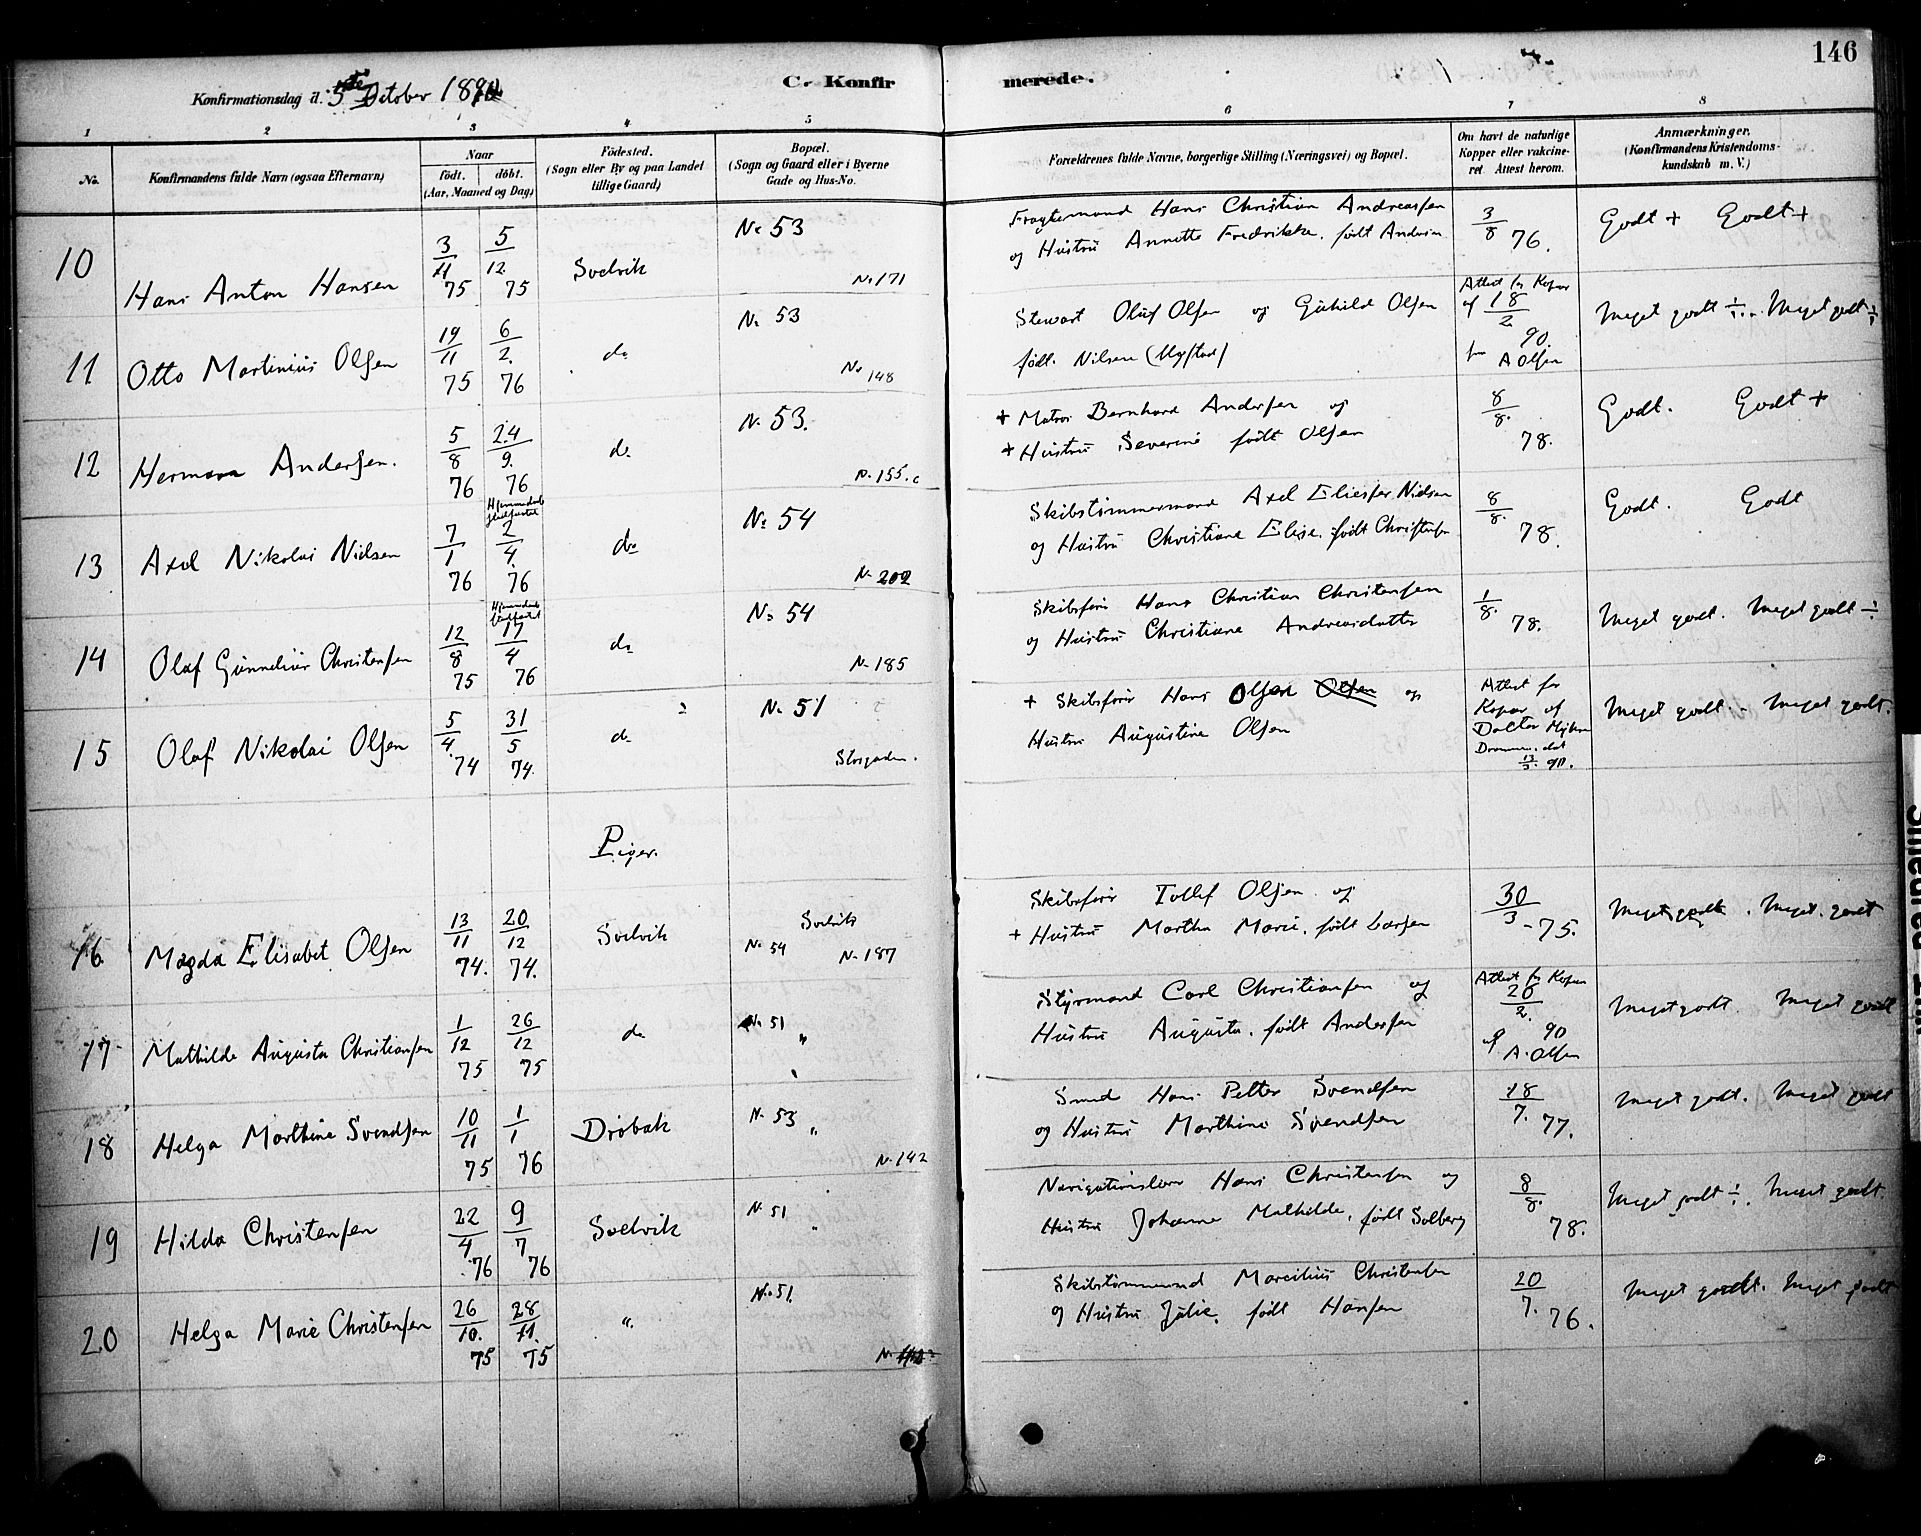 146
Konfirmationsdag d. 5te October 1890.
C. Konfirmerede.
1 2 3 4 5 6 7 8
No.
Konfirmandens fulde Navn (ogsaa Efternavn)
Naar
födt. döbt.
(Aar, Maaned og Dag)
Födested.
(Sogn eller By og paa Landet
tillige Gaard)
Bopæl.
(Sogn og Gaard eller i Byerne
Gade og Hus-No.
Forældrenes fulde Navne, borgerlige Stilling (Næringsvei) og Bopæl.
Om havt de naturlige
Kopper eller vakcine-
ret. Attest herom.
Anmærkninger.
(Konfirmandens Kristendoms-
kundskab m. V.)
10 Hans Anton Hansen 3/11 75 5/12 75 Svelvik No 53 No 171
Fragtemand Hans Christian Andreassen
og Hustru Annette Fredrikke, født
3/8 76. Godt + Godt +
11 Otto Martinius Olsen 19/11 75 6/2. 76 do No 53 No 148
Stewart Oluf Olsen og Guhild Olsen
født. Nilsen
Attest for Kopper
af 18/2 90. fra A Olsen
Meget godt ÷. Meget godt ÷
12 Herman Andersen. 5/8 76 24/9. 76 do No 53. No 155.c
+ Matros Bernhard Andersen og
+ Hustru Severine født Olsen
8/8. 78. Godt. Godt +
13 Axel Nikolai Nielsen 7/1 76 Hjemmedøbt 2/4. 76 do No 54 No 202
Skibstømmermand Axel Elieser Nielsen
og Hustru Christiane Elise, født Christensen
8/8. 78. Godt. Godt
14 Olaf Gunnelius Christensen 12/8 75 Hjemmedøbt 17/4 76 do No 54 No 185
Skibsfører Hans Christian Christensen
og Hustru Christiane Andreasdatter
1/8. 78. Meget godt. Meget godt ÷
15 Olaf Nikolai Olsen 5/4. 74 31/5 74. do No 51 Storgaden.
+ Skibsfører Hans Olsen Olsen og
Hustru Augustine Olsen
Attest for
Kopper af
Doctor
Drammen, dat
90.
Meget godt. Meget godt.
Piger.
16. Magda Elisabet Olsen 13/11 74. 20/12 74. Svelvik Svelvik No 54 No 187
Skibsfører Tollef Olsen og
+ Hustru Martha Marie, født Larsen
30/3 - 75. Meget godt. Meget godt
17 Mathilde Augusta Christiansen 1/12 75 26/12 75 do No 51 "
Styrmand Carl Christiansen og
Hustru Augusta, født Andersen
Attest for Kopper
20/2. 90
af A. Olsen
Meget godt. Meget godt
18 Helga Marthine Svendsen 10/11 75 1/1 76 Drøbak No 53 " No 142
Smed Hans Petter Svendsen
og Hustru Marthine Svendsen
18/7. 77. Meget godt. Meget godt
19 Hilda Christensen 22/4 76 9/7 76 Svelvik No 51 "
Navigationslærer Hans Christensen og
Hustru Johanne Mathilde, født Solberg
8/8. 78. Meget godt ÷. Meget godt.
20 Helga Marie Christensen 26/10. 75 28/11. 75 " No 51.
Skibstømmermand Marcilius Christensen
og Hustru Julie, født Hansen
20/7. 76. Meget godt. Meget godt